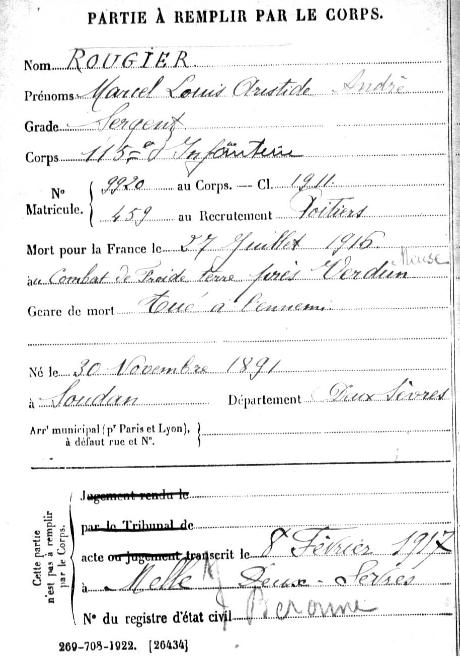 PARTIE À REMPLIR PAR LE CORPS.
Nom ROUGIER
Prénoms Marcel Louis Aristide André
Grade Sergent
Corps 115e d'Infanterie
N° Matricule. { 9920 au Corps. — Cl. 1911
459 au Recrutement Poitiers
Mort pour la France le 27 Juillet 1916
au Combat de Froide terre près Verdun Meuse
Genre de mort Tué à l'ennemi
Né le 30 Novembre 1891
à Soudan Département Deux Sèvres
Arrt municipal (pr Paris et Lyon), à défaut rue et N°. {
Cette partie n'est pas à remplir par le Corps.
Jugement rendu le
par le Tribunal de
acte ou jugement transcrit le 8 Février 1917
à Melle Deux-Sèvres
N° du registre d'état civil
269-708-1922. [26434]